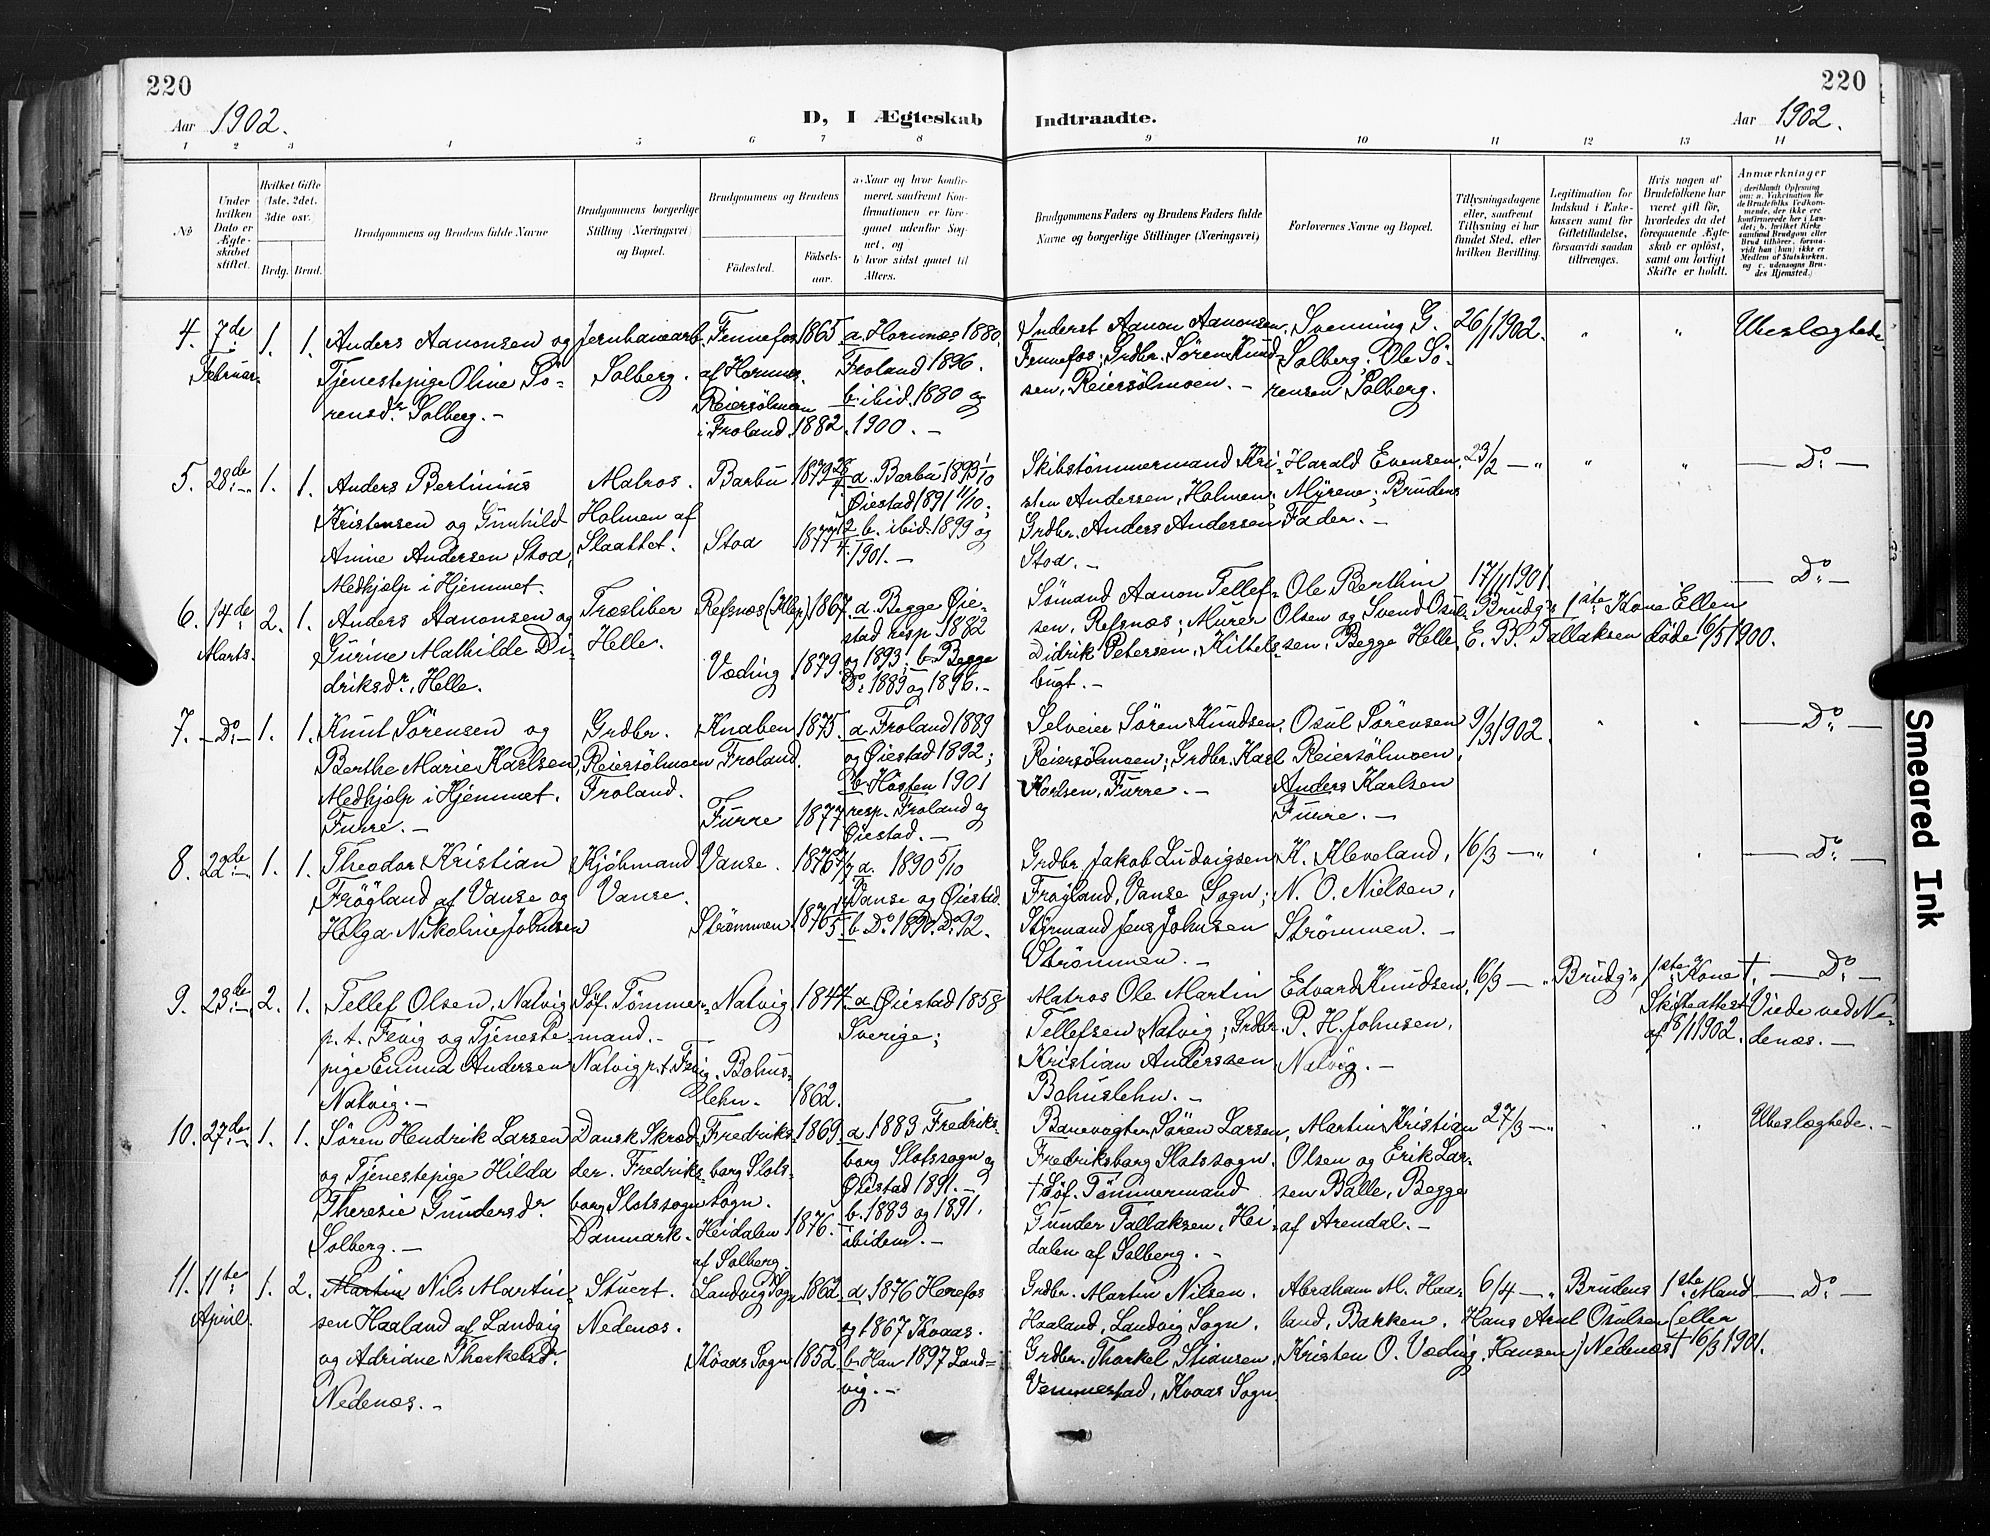 220
220
Aar 1902.
D, I Ægteskab
Indtraadte.
Aar 1902.
1 2 3 4 5 6 7 8 9 10 11 12 13 14
No
Under hvilken Dato er Ægteskabet stiftet.
Hvilket Gifte (1ste, 2det, 3die osv.)
Brdg. Brud.
Brudgommens og Brudens fulde Navne
Brudgommens borgerlige Stilling (Næringsvei) og Bopæl.
Brudgommens og Brudens
Fødested.
Fødselsaar.
a. Naar og hvor konfirmeret, saafremt Konfirmationen er foregaaet udenfor Sognet, og
b. hvor sidst gaaet til Alters.
Brudgommens Faders og Brudens Faders fulde Navne og borgerlige Stillinger (Næringsvei)
Forlovernes Navne og Bopæl.
Tillysningsdagene eller, saafremt Tillysning ei har fundet Sted, efter hvilken Bevilling.
Legitimation for Indskud i Enkekassen samt for Giftetilladelse, forsaavidt saadan tiltrænges.
Hvis nogen af Brudefolkene har været gift før, hvorledes da det foregaaende Ægteskab er opløst, samt om lovligt Skifte er holdt.
Anmærkninger
4. 7de Februar. 1. 1.
Anders Aanonsen og
Tjenestepige Oline Sö-
rensdr. Solberg. –
Jernbanearb.
Solberg.
Fennefos 1865
af Hornnes.
Reiersölmoen
i Froland. 1882.
a. Hornnes 1880,
Froland 1896.
b. ibid. 1880 og
1900. –
Inderst Aanon Aanonsen,
Fennefos; Grdbr. Sören Knud-
sen, Reiersölmoen. –
Svenning G.
Solberg; Ole Sö-
rensen Solberg.
26/1 1902. " "
Ubeslægtede.
5. 28de 1. 1.
Anders Bertinius
Kristensen og Gunhild
Anine Andersen Stoa,
Medhjælp i Hjemmet.
Matros.
Holmen af
Slaattet.
Barbu 1879
Stoa 1877
a. Barbu 1893 1/10
Øiestad 1891 11/10;
b. ibid. 1899 og
1901. –
Skibstömmermand Kri-
sten Andersen, Holmen;
Grdbr. Anders Andersen
Stoa. –
Harald Evensen,
Myrene; Brudens
Fader. –
23/2 – " " "
Do –
6. 14de Marts. 2. 1.
Anders Aanonsen og
Gurine Mathilde Di-
driksdr. Helle.
Træsliber
Helle.
Refsnæs (Klep) 1867.
Væding 1879.
a. Begge Øie-
stad resp. 1882
og 1893; b. Begge
Do 1889 og 1896. –
Sömand Aanon Tellef-
sen, Refsnæs; Murer
Didrik Petersen, Kittels-
bugt. –
Ole Berthin
Olsen og Svend Osul-
sen, Begge Helle.
17/11 1901.
Brudg's 1ste Kone Ellen
E. B. Tallaksen döde 16/5 1900.
Do –
7. – Do – 1. 1.
Knut Sørensen og
Berthe Marie Karlsen,
Medhjælp i Hjemmet.
Furre. –
Grdbr.
Reiersölmoen
Froland.
Knaben 1875.
Froland.
Furre 1877
a. Froland 1889
og Øiestad 1892;
b. Hösten 1901
resp. Froland og
Øiestad. –
Selveier Sören Knudsen,
Reiersölmoen; Grdbr. Karl
Karlsen, Furre. –
Osul Sørensen
Reiersölmoen,
Anders Karlsen
Furre. –
9/3 1902. " "
Do –
8. 22de 1. 1.
Theodor Kristian
Frögland af Vanse og
Helga Nikoline Johnsen
Kjöbmand
Vanse.
Vanse. 1876
Strømmen. 1876
a. 1890 5/10
Vanse og Øiestad.
b. Do 1890. Do 92.
Grdbr. Jakob Ludvigsen
Frøgland, Vanse Sogn;
Styrmand Jens Johnsen
Strømmen. –
K. Kleveland,
N. O. Nielsen,
Strømmen. –
16/3 – " " "
Do –
9. 23de 2. 1.
Tellef Olsen, Natvig
p. t. Fevig og Tjeneste-
pige Emma Andersen
Natvig. –
Søf. Tømmer-
mand. –
Natvig p. t. Fevig.
Natvig. 1844.
Bohus-
lehn. – 1862.
a. Øiestad 1858
Sverige;
Matros Ole Martin
Tellefsen, Natvig; Grdbr.
Kristian Anderssen
Bohuslehn. –
Edvard Knudsen,
P. H. Johnsen,
Natvig. –
16/3 – "
Brudg's 1ste Kone †.
Skifteattest
af 8/1 1902.
Do –
Viede ved Ne-
denæs. –
10. 27de 1. 1.
Søren Hendrik Larsen
og Tjenestepige Hilda
Theresie Gundersdr.
Solberg. –
Dansk Skræd-
der. Fredriks-
borg Slotssogn
Danmark.
Fredriks- 1869.
borg Slots-
sogn.
Heidalen 1876.
af Solberg.
a. 1883 Fredriks-
borg Slotssogn og
Øiestad 1891. –
b. 1883 og 1891.
ibidem. –
Banevogter Søren Larsen,
Fredriksborg Slotssogn.
† Søf. Tömmermand
Gunder Tallaksen, Hei-
dalen af Solberg. –
Martin Kristian
Olsen og Erik Lar-
sen Balle, Begge
af Arendal. –
27/3 – " " "
Ubeslægtede. –
11. 11te April. 1. 2.
Martin Nils Martin-
sen Haaland af Landvig
og Adriane Thorkelsdr.
Nedenæs. –
Stuert.
Nedenæs.
Landvig Sogn 1862.
Kvaas Sogn 1852.
a. 1876 Herefos
og 1867 Kvaas.
b. Han 1897 Land-
vig. –
Grdbr. Martin Nilsen.
Haaland, Landvig Sogn.
Grdbr. Thorkel Stiansen,
Vemmestad, Kvaas Sogn.
Abraham M. Haa-
land, Bakken.
Kristen O. Væding.
6/4 – "
Brudens 1ste Mand
Hans Axel Osulsen (eller
Hansen) Nedenæs † 16/3 1901.
Do –
Smeared Ink